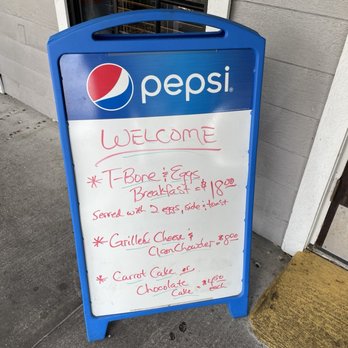 pepsi
WELCOME
* T-Bone & Eggs
Breakfast = $18.00
Served with 2 eggs, side & toast
* Grilled Cheese &
Clam Chowder = $8.00
* Carrot Cake or
Chocolate
Cake = $4.50
each